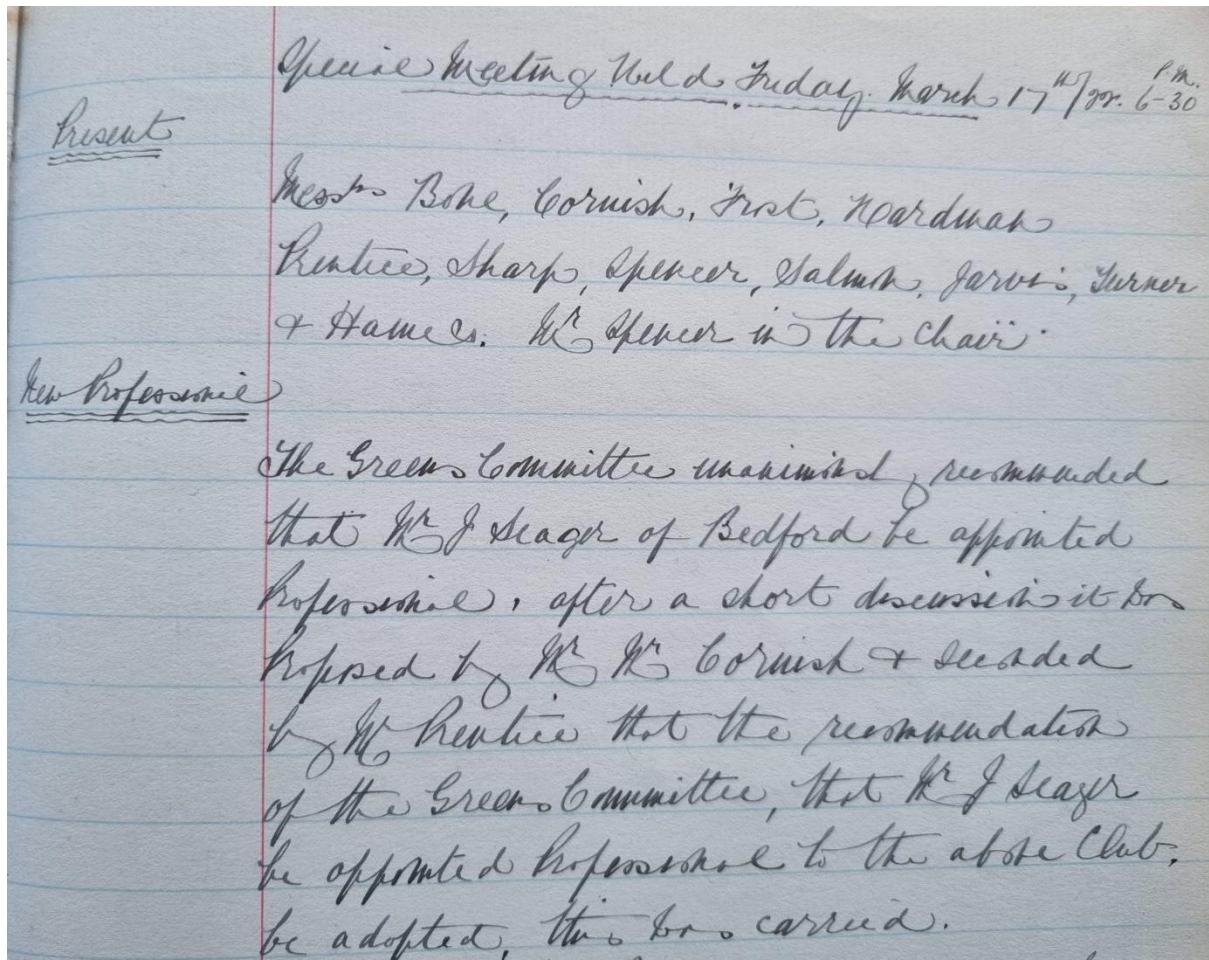 Special Meeting Held Friday. March 17th/22. 6-30 P.M.
Present
Messrs Bone, Cornish, Frost, Hardman
Prentice, Sharp, Spencer, Salmon, Jarvis, Turner
& Hames. Mr Spencer in the Chair.
New Professional
The Greens Committee unanimously recommended
that Mr J Seager of Bedford be appointed
Professional, after a short discussion it was
Proposed by Mr Mr Cornish & seconded
by Mr Prentice that the recommendation
of the Greens Committee, that Mr J Seager
be appointed Professional to the above Club,
be adopted, this was carried.